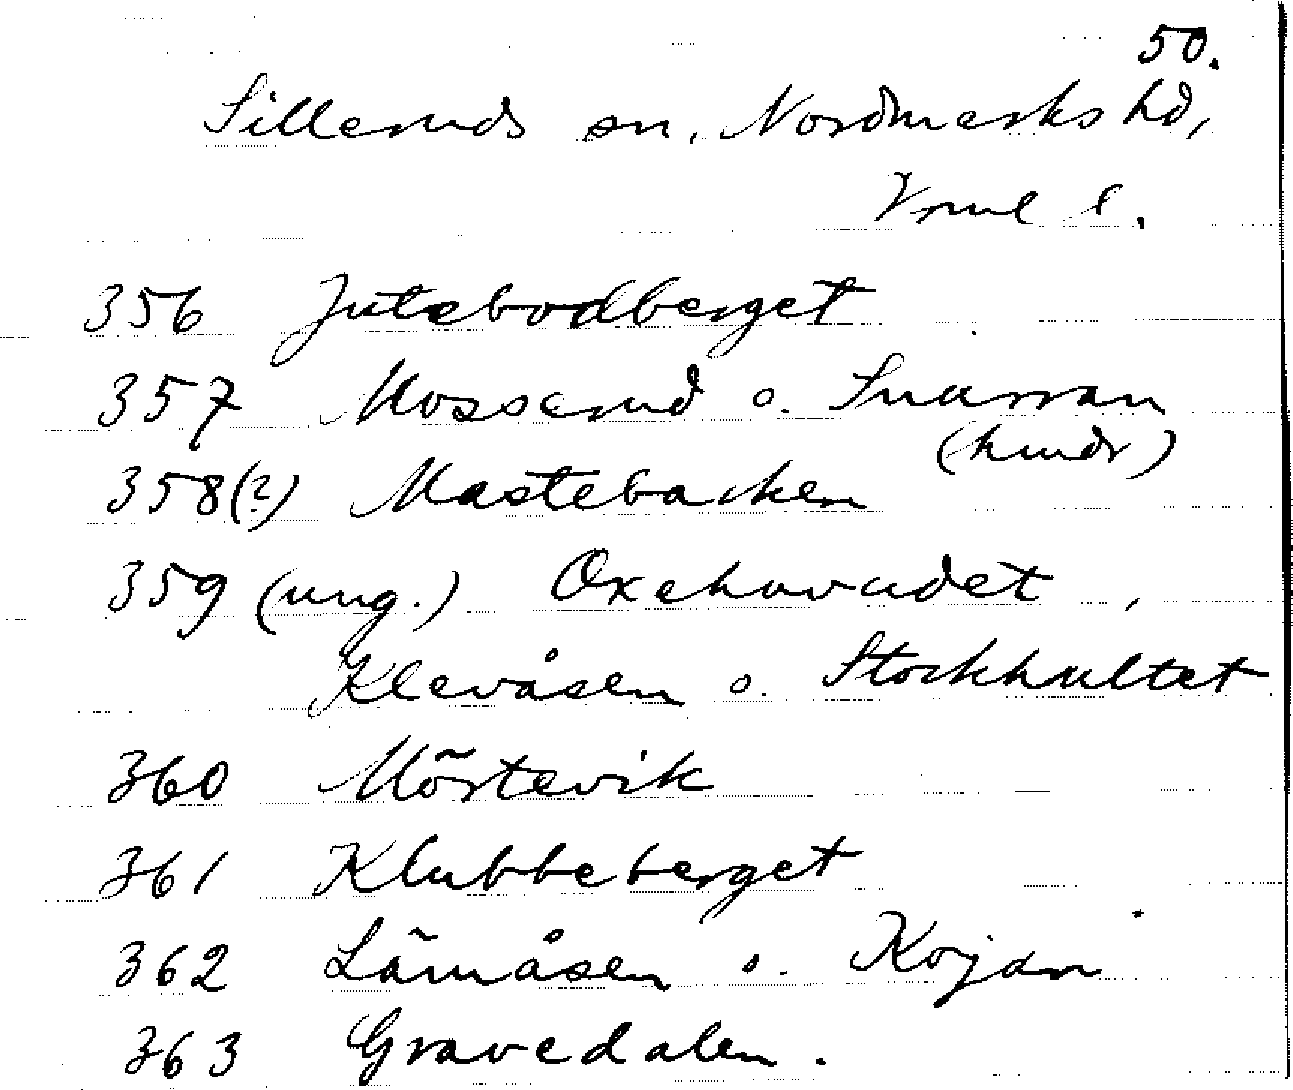 50.
Silleruds sn, Nordmarks hd,
Vrml l.
356 Jutebodberget
357 Mosserud o. Snarran
(kindr)
358(?) Mastebacken
359 (ung.) Oxehuvudet,
Klevåsen o. Stockhultet
360 Mörtevik
361 Klubbeberget
362 Lämåsen o. Kojan
363 Gravedalen.